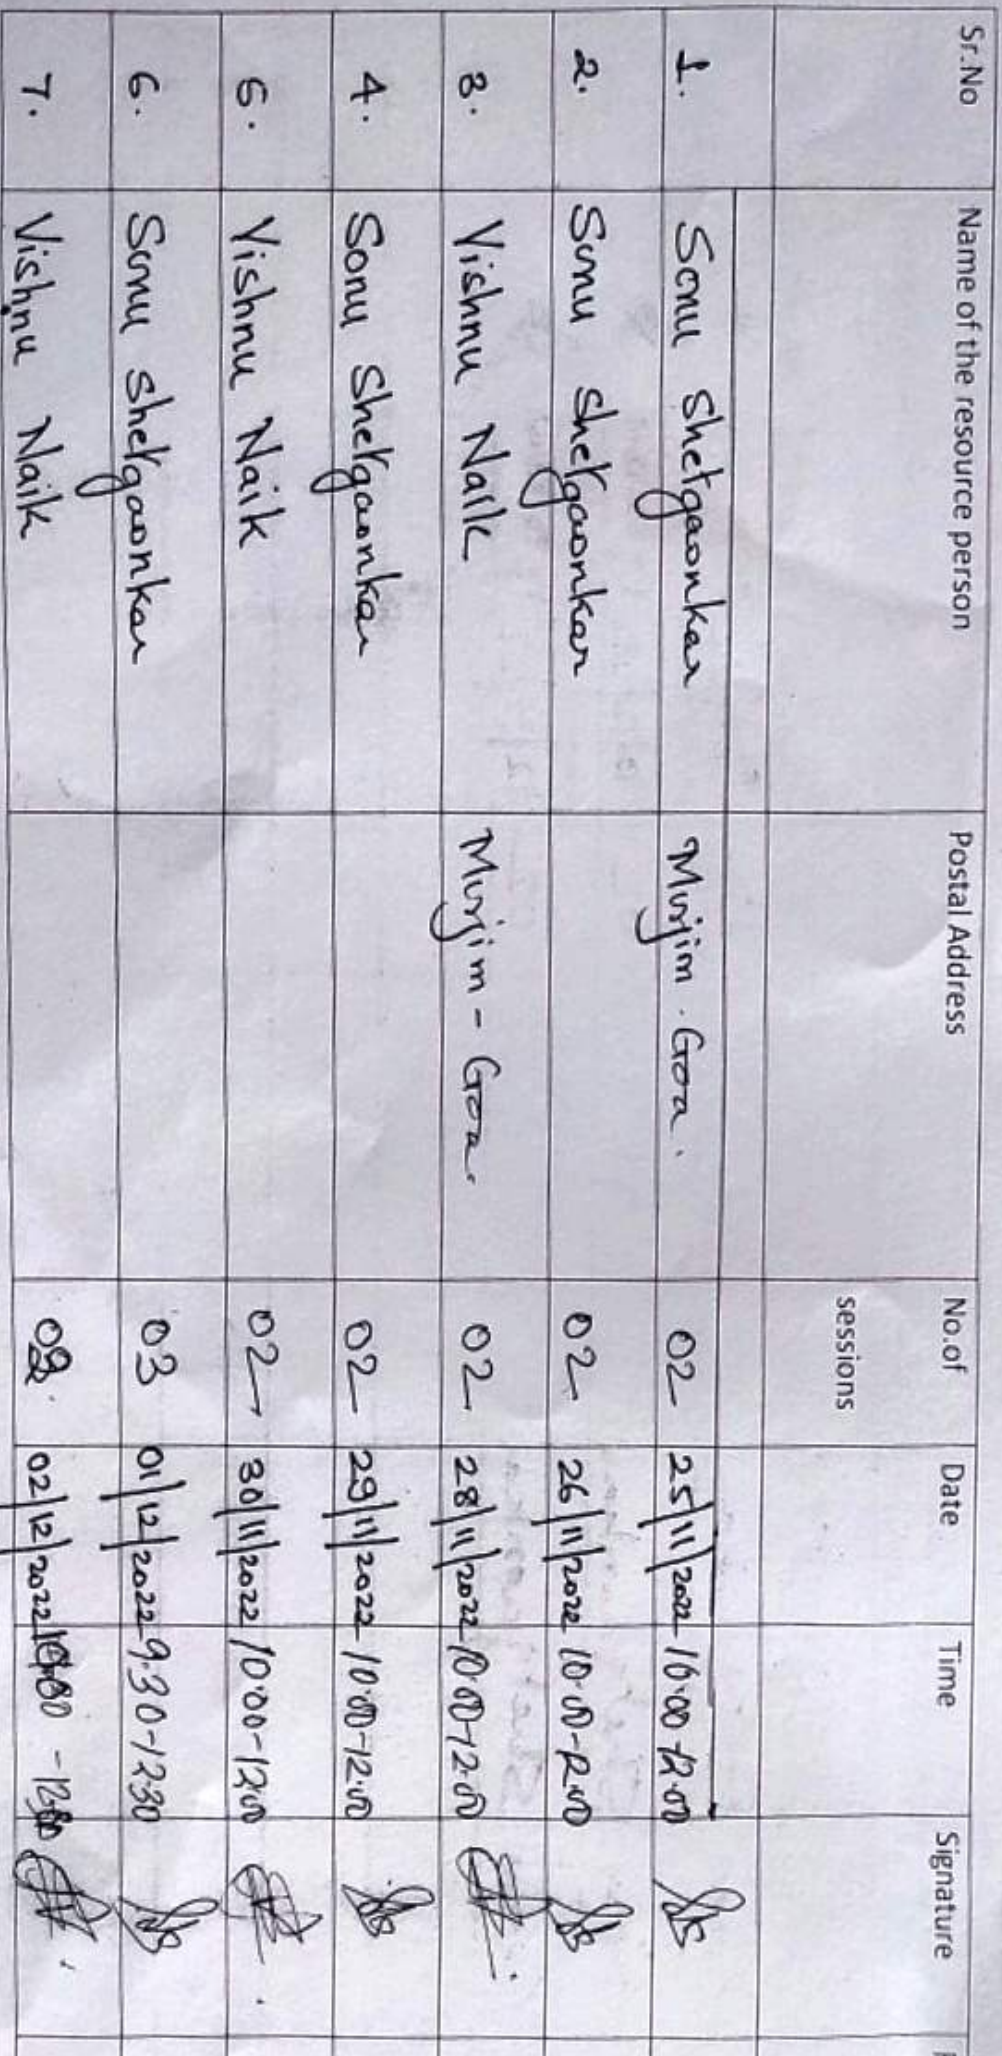 Sr.No Name of the resource person Postal Address No.of sessions Date Time Signature
1. Sonu Shetgaonkar Morjim. Goa. 02 25/11/2022 10:00-12:00
2. Sonu Shetgaonkar 02 26/11/2022 10:00-12:00
3. Vishnu Naik Morjim - Goa. 02 28/11/2022 10:00-12:00
4. Sonu Shetgaonkar 02 29/11/2022 10:00-12:00
5. Vishnu Naik 02 30/11/2022 10:00-12:00
6. Sonu Shetgaonkar 03 01/12/2022 9.30-12.30
7. Vishnu Naik 02/12/2022